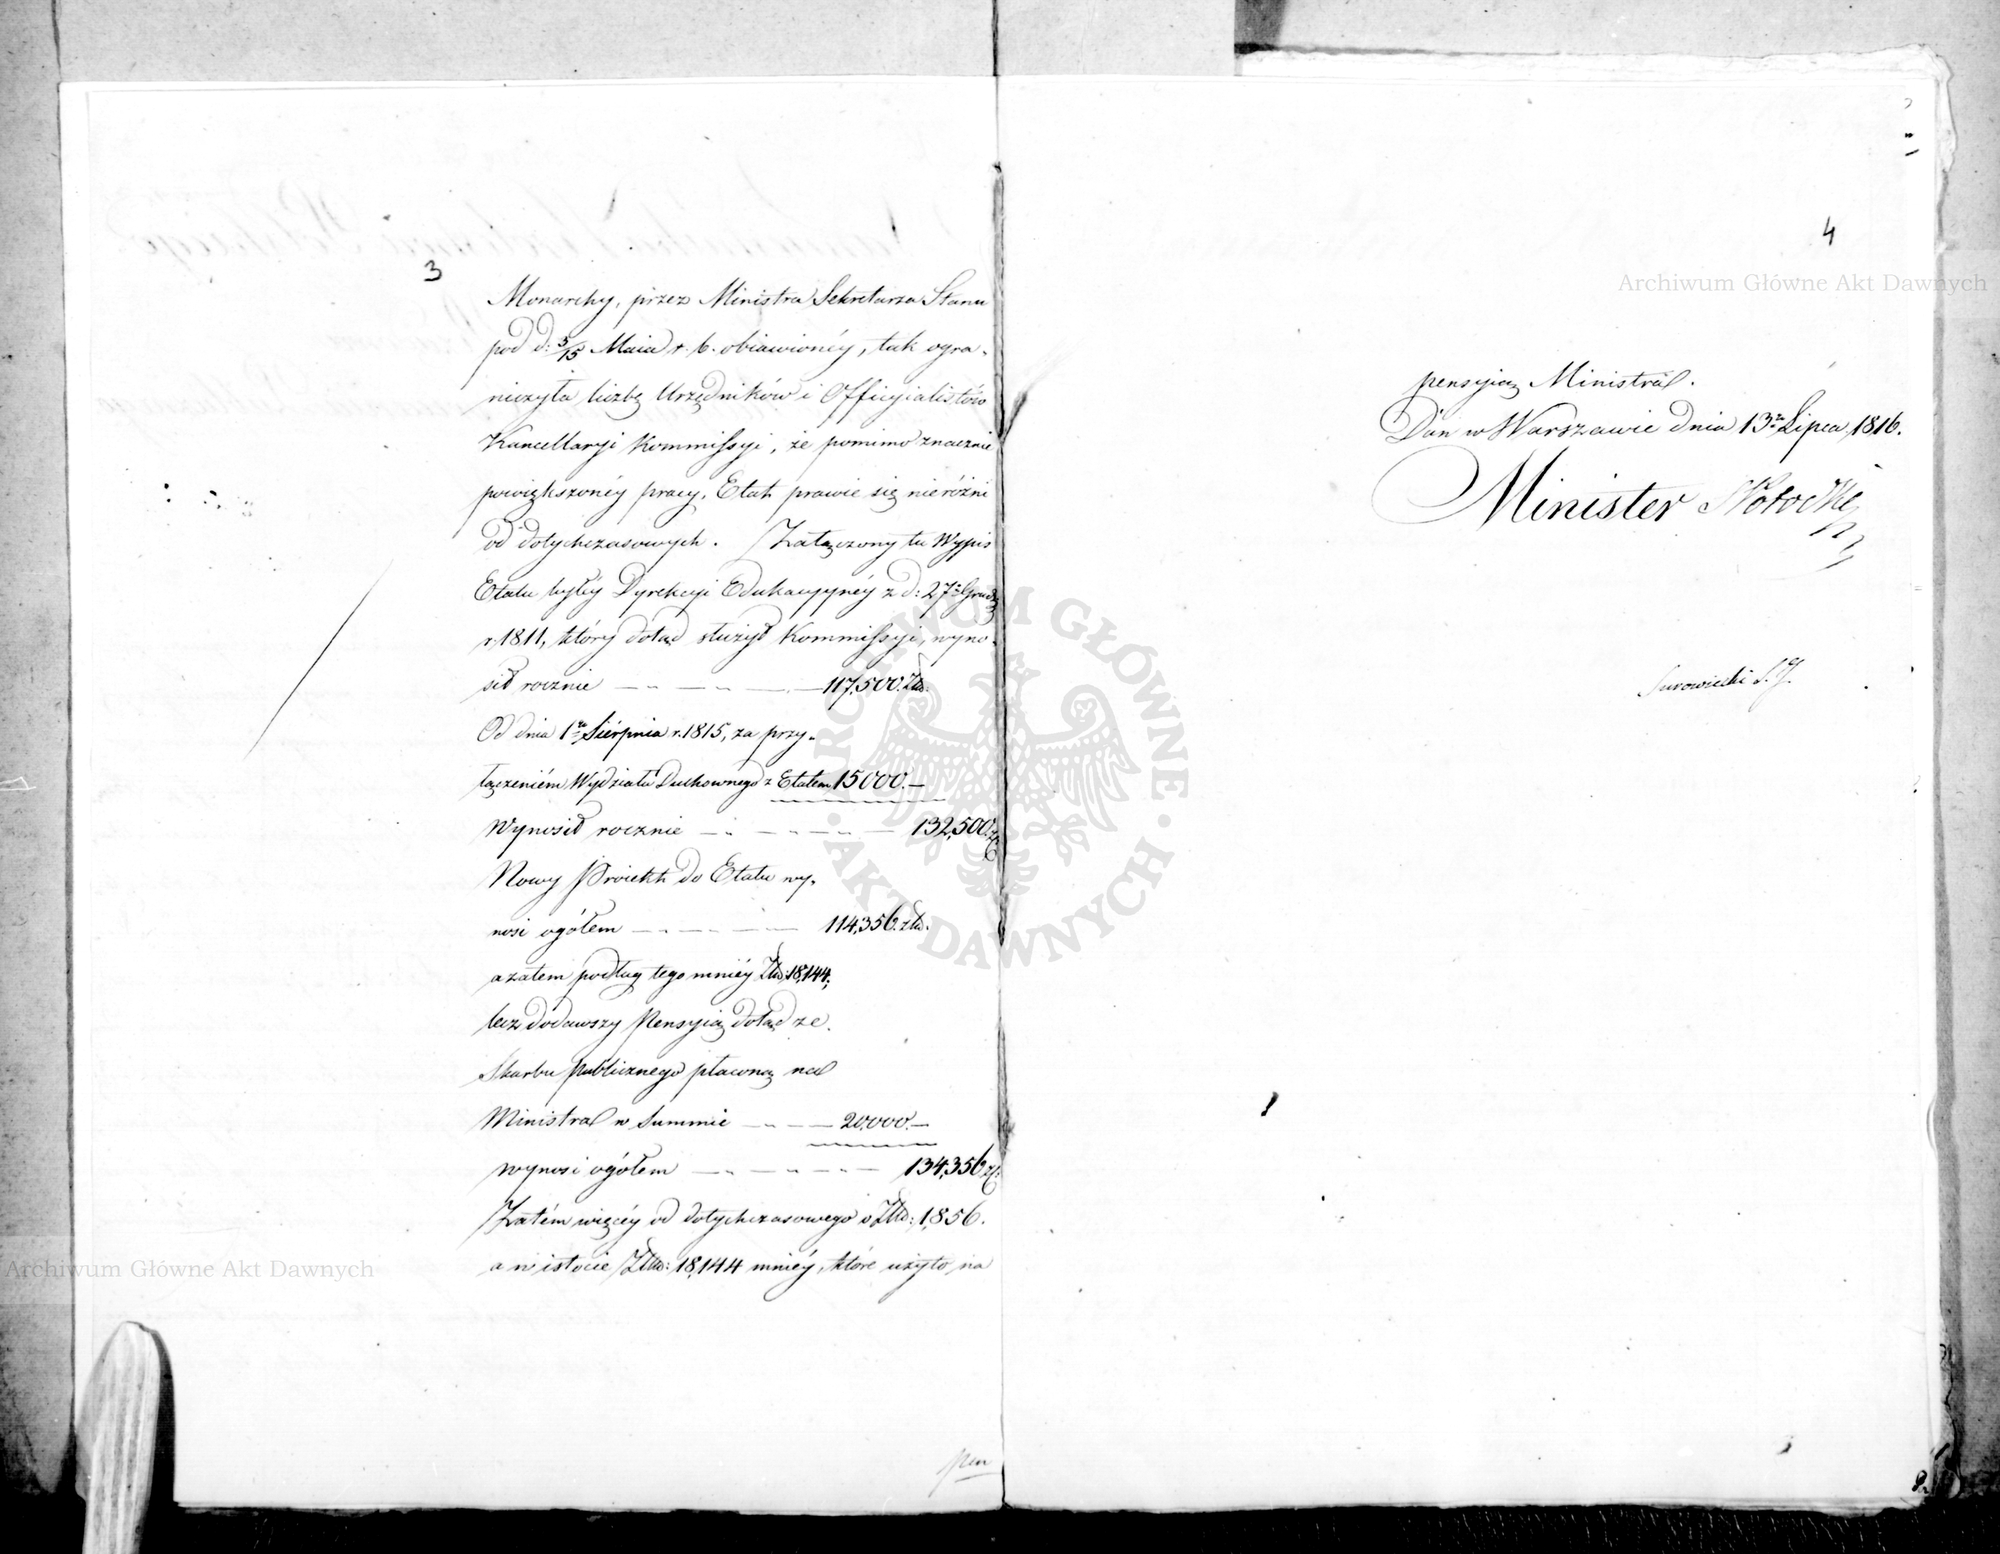 3
Monarchy, przez Ministra Sekretarza Stanu
pod d: 3/15 Maia r. b. obiawionéy, tak ogra-
niczyła liczbę Urzędników i Officyialistów
Kancellaryi Kommissyi, że pomimo znacznie
powiększonéy pracy, Etat prawie się nieróżni
od dotychczasowych. Załączony tu Wypis
Etatu byłéy Dyrekcyi Edukacyynéy z d: 27º Grud:
r. 1811, który dotąd służył Kommissyi, wyno-
sił rocznie — " — " — 117,500. Złł:
Od dnia 1go Sierpnia r. 1815, za przy-
łączeniém Wydziału Duchownego z Etatem 15000.—
Wynosił rocznie — " — " — 132,500. zł:
Nowy Proiekt do Etatu wy-
nosi ogółem — " — " — 114,356. złł.
azatem podług tego mniéy Złł: 18,144.
lecz dodawszy Pensyią dotąd ze
Skarbu publicznego płaconą na
Ministra w Summie — " — 20,000.—
wynosi ogółem — " — " — 134,356 zł:
Zatém więcéy od dotychczasowego o Złł: 1,856.
a w istocie Złł: 18,144 mniéy, które użyto na
pen
4
pensyią Ministra.
Dan w Warszawie dnia 13go Lipca, 1816.
Minister Potocki
Surowiecki S. J.
Archiwum Główne Akt Dawnych
Archiwum Główne Akt Dawnych
ARCHIWUM GŁÓWNE · AKT DAWNYCH ·